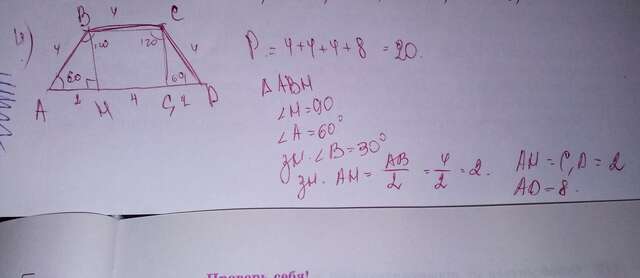 4)
B 4 C
4 120 120 4
60 60
A 2 H 4 C₁ 2 D
P = 4+4+4+8 = 20.
△ABH
∠H=90
∠A=60°
зн. ∠B=30°
зн. AH = AB/2 = 4/2 = 2. AH = C₁D = 2
AD=8.
Проверь себя!